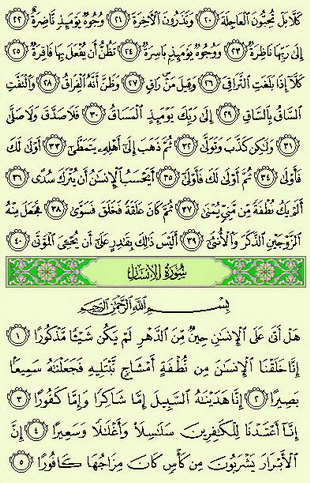 كَلَّا بَلْ تُحِبُّونَ ٱلْعَاجِلَةَ ٢٠ وَتَذَرُونَ ٱلْءَاخِرَةَ ٢١ وُجُوهٌ يَوْمَئِذٍ نَّاضِرَةٌ ٢٢
إِلَىٰ رَبِّهَا نَاظِرَةٌ ٢٣ وَوُجُوهٌ يَوْمَئِذٍۭ بَاسِرَةٌ ٢٤ تَظُنُّ أَن يُفْعَلَ بِهَا فَاقِرَةٌ ٢٥
كَلَّآ إِذَا بَلَغَتِ ٱلتَّرَاقِىَ ٢٦ وَقِيلَ مَنْ رَاقٍ ٢٧ وَظَنَّ أَنَّهُ ٱلْفِرَاقُ ٢٨ وَٱلْتَفَّتِ
ٱلسَّاقُ بِٱلسَّاقِ ٢٩ إِلَىٰ رَبِّكَ يَوْمَئِذٍ ٱلْمَسَاقُ ٣٠ فَلَا صَدَّقَ وَلَا صَلَّىٰ
٣١ وَلَٰكِن كَذَّبَ وَتَوَلَّىٰ ٣٢ ثُمَّ ذَهَبَ إِلَىٰٓ أَهْلِهِۦ يَتَمَطَّىٰٓ ٣٣ أَوْلَىٰ لَكَ
فَأَوْلَىٰ ٣٤ ثُمَّ أَوْلَىٰ لَكَ فَأَوْلَىٰٓ ٣٥ أَيَحْسَبُ ٱلْإِنسَٰنُ أَن يُتْرَكَ سُدًى ٣٦
أَلَمْ يَكُ نُطْفَةً مِّن مَّنِىٍّ يُمْنَىٰ ٣٧ ثُمَّ كَانَ عَلَقَةً فَخَلَقَ فَسَوَّىٰ ٣٨ فَجَعَلَ مِنْهُ
ٱلزَّوْجَيْنِ ٱلذَّكَرَ وَٱلْأُنثَىٰٓ ٣٩ أَلَيْسَ ذَٰلِكَ بِقَٰدِرٍ عَلَىٰٓ أَن يُحْـِۧىَ ٱلْمَوْتَىٰ ٤٠
سُورَةُ الإِنسَان
بِسْمِ ٱللَّهِ ٱلرَّحْمَٰنِ ٱلرَّحِيمِ
هَلْ أَتَىٰ عَلَى ٱلْإِنسَٰنِ حِينٌ مِّنَ ٱلدَّهْرِ لَمْ يَكُن شَيْـًٔا مَّذْكُورًا ١
إِنَّا خَلَقْنَا ٱلْإِنسَٰنَ مِن نُّطْفَةٍ أَمْشَاجٍ نَّبْتَلِيهِ فَجَعَلْنَٰهُ سَمِيعًۢا
بَصِيرًا ٢ إِنَّا هَدَيْنَٰهُ ٱلسَّبِيلَ إِمَّا شَاكِرًا وَإِمَّا كَفُورًا ٣
إِنَّآ أَعْتَدْنَا لِلْكَٰفِرِينَ سَلَٰسِلَا۟ وَأَغْلَٰلًا وَسَعِيرًا ٤ إِنَّ
ٱلْأَبْرَارَ يَشْرَبُونَ مِن كَأْسٍ كَانَ مِزَاجُهَا كَافُورًا ٥